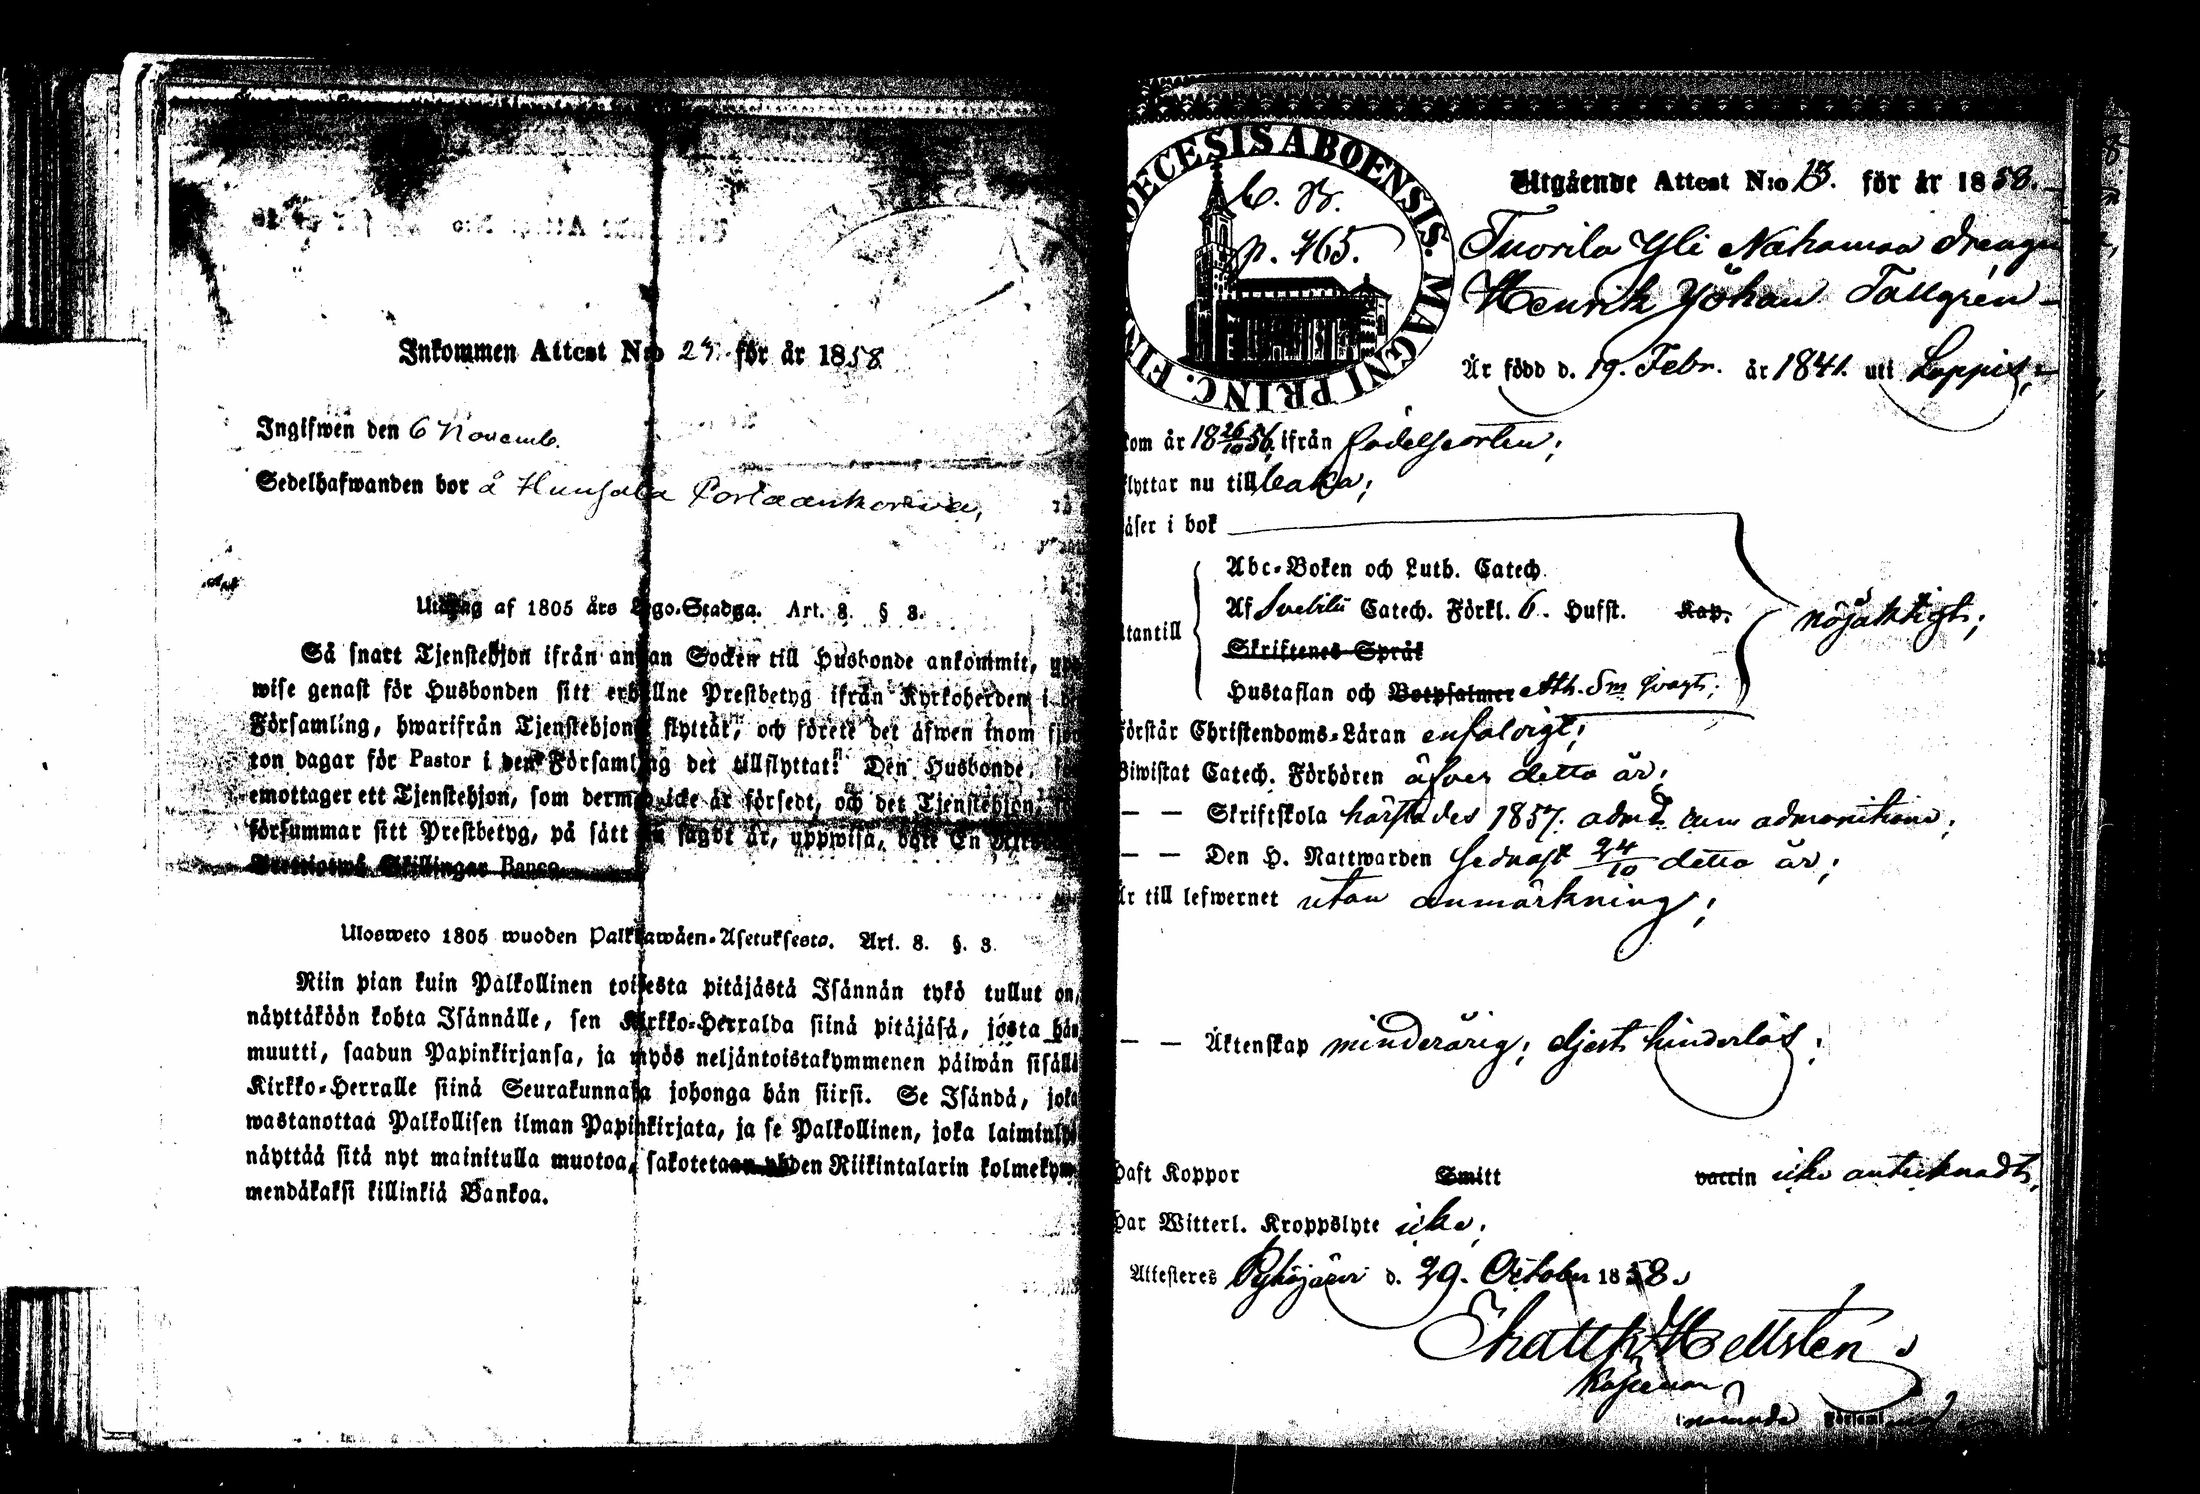 Inkommen Attest N:o 24. för år 1858.
Ingifwen den 6 Novemb.
Sedelhafwanden bor å Hunsala
Utdrag af 1805 års Lego-Stadga. Art. 8. § 3.
Så snart Tjenstehjon ifrån annan Socken till Husbonde ankommit, upp-
wise genast för Husbonden sitt erhållne Prestbetyg ifrån Kyrkoherden i
Församling, hwarifrån Tjenstehjonet flyttat, och förete det äfwen inom fjor-
ton dagar för Pastor i den Församling det tillflyttat. Den Husbonde,
emottager ett Tjenstehjon, som dermed icke är försedt, och det Tjenstehjon,
försummar sitt Prestbetyg, på sätt nu sagdt är, uppwisa, böte En
Trettiotwå Skillingar Banco.
Ulosweto 1805 wuoden Palkkawäen-Asetuksesta. Art. 8. §. 3.
Niin pian kuin Palkollinen toisesta pitäjästä Isännän tykö tullut on,
näyttäköön kohta Isännälle, sen Kirkko-Herralda siinä pitäjäsä, josta hän
muutti, saadun Papinkirjansa, ja myös neljäntoistakymmenen päiwän sisällä
Kirkko-Herralle siinä Seurakunnasa johonga hän siirsi. Se Isändä, joka
wastanottaa Palkollisen ilman Papinkirjata, ja se Palkollinen, joka laiminlyö
näyttää sitä nyt mainitulla muotoa, sakotetaan yhden Riikintalarin kolmekym-
mendäkaksi killinkiä Bankoa.
DIOECESIS ABOENSIS. MAGNI PRINC. FIN
p. 465.
Utgående Attest N:o 13. för år 1858.
Tuorila Yli Nahamaa drengen
Henrik Johan Tallgrén
Är född d. 19. Febr. år 1841. uti Loppis,
kom år 18 26/10 56. ifrån födelseorten;
flyttar nu till
läser i bok
Abc-Boken och Luth. Catech
Af Svebilii Catech. Förkl. 6. Hufst. Kap.
utantill
nöjaktigt;
Skriftenes Språk
Hustaflan och Botpsalmer Ath. Sm
förstår Christendoms-Läran enfaldigt;
Biwistat Catech. Förhören äfven detta år;
— — Skriftskola härstädes 1857. adm. cum admonitione;
— — Den H. Nattwarden sednast 24/10 detta år;
Är till lefwernet utan anmärkning;
— — Äktenskap minderårig; eljest hinderlös;
Haft Koppor Smitt vaccin icke antecknadt,
Har Witterl. Kroppslyte icke;
Attesteres Pyhäjärvi d. 29. October 1858.
Hellstén